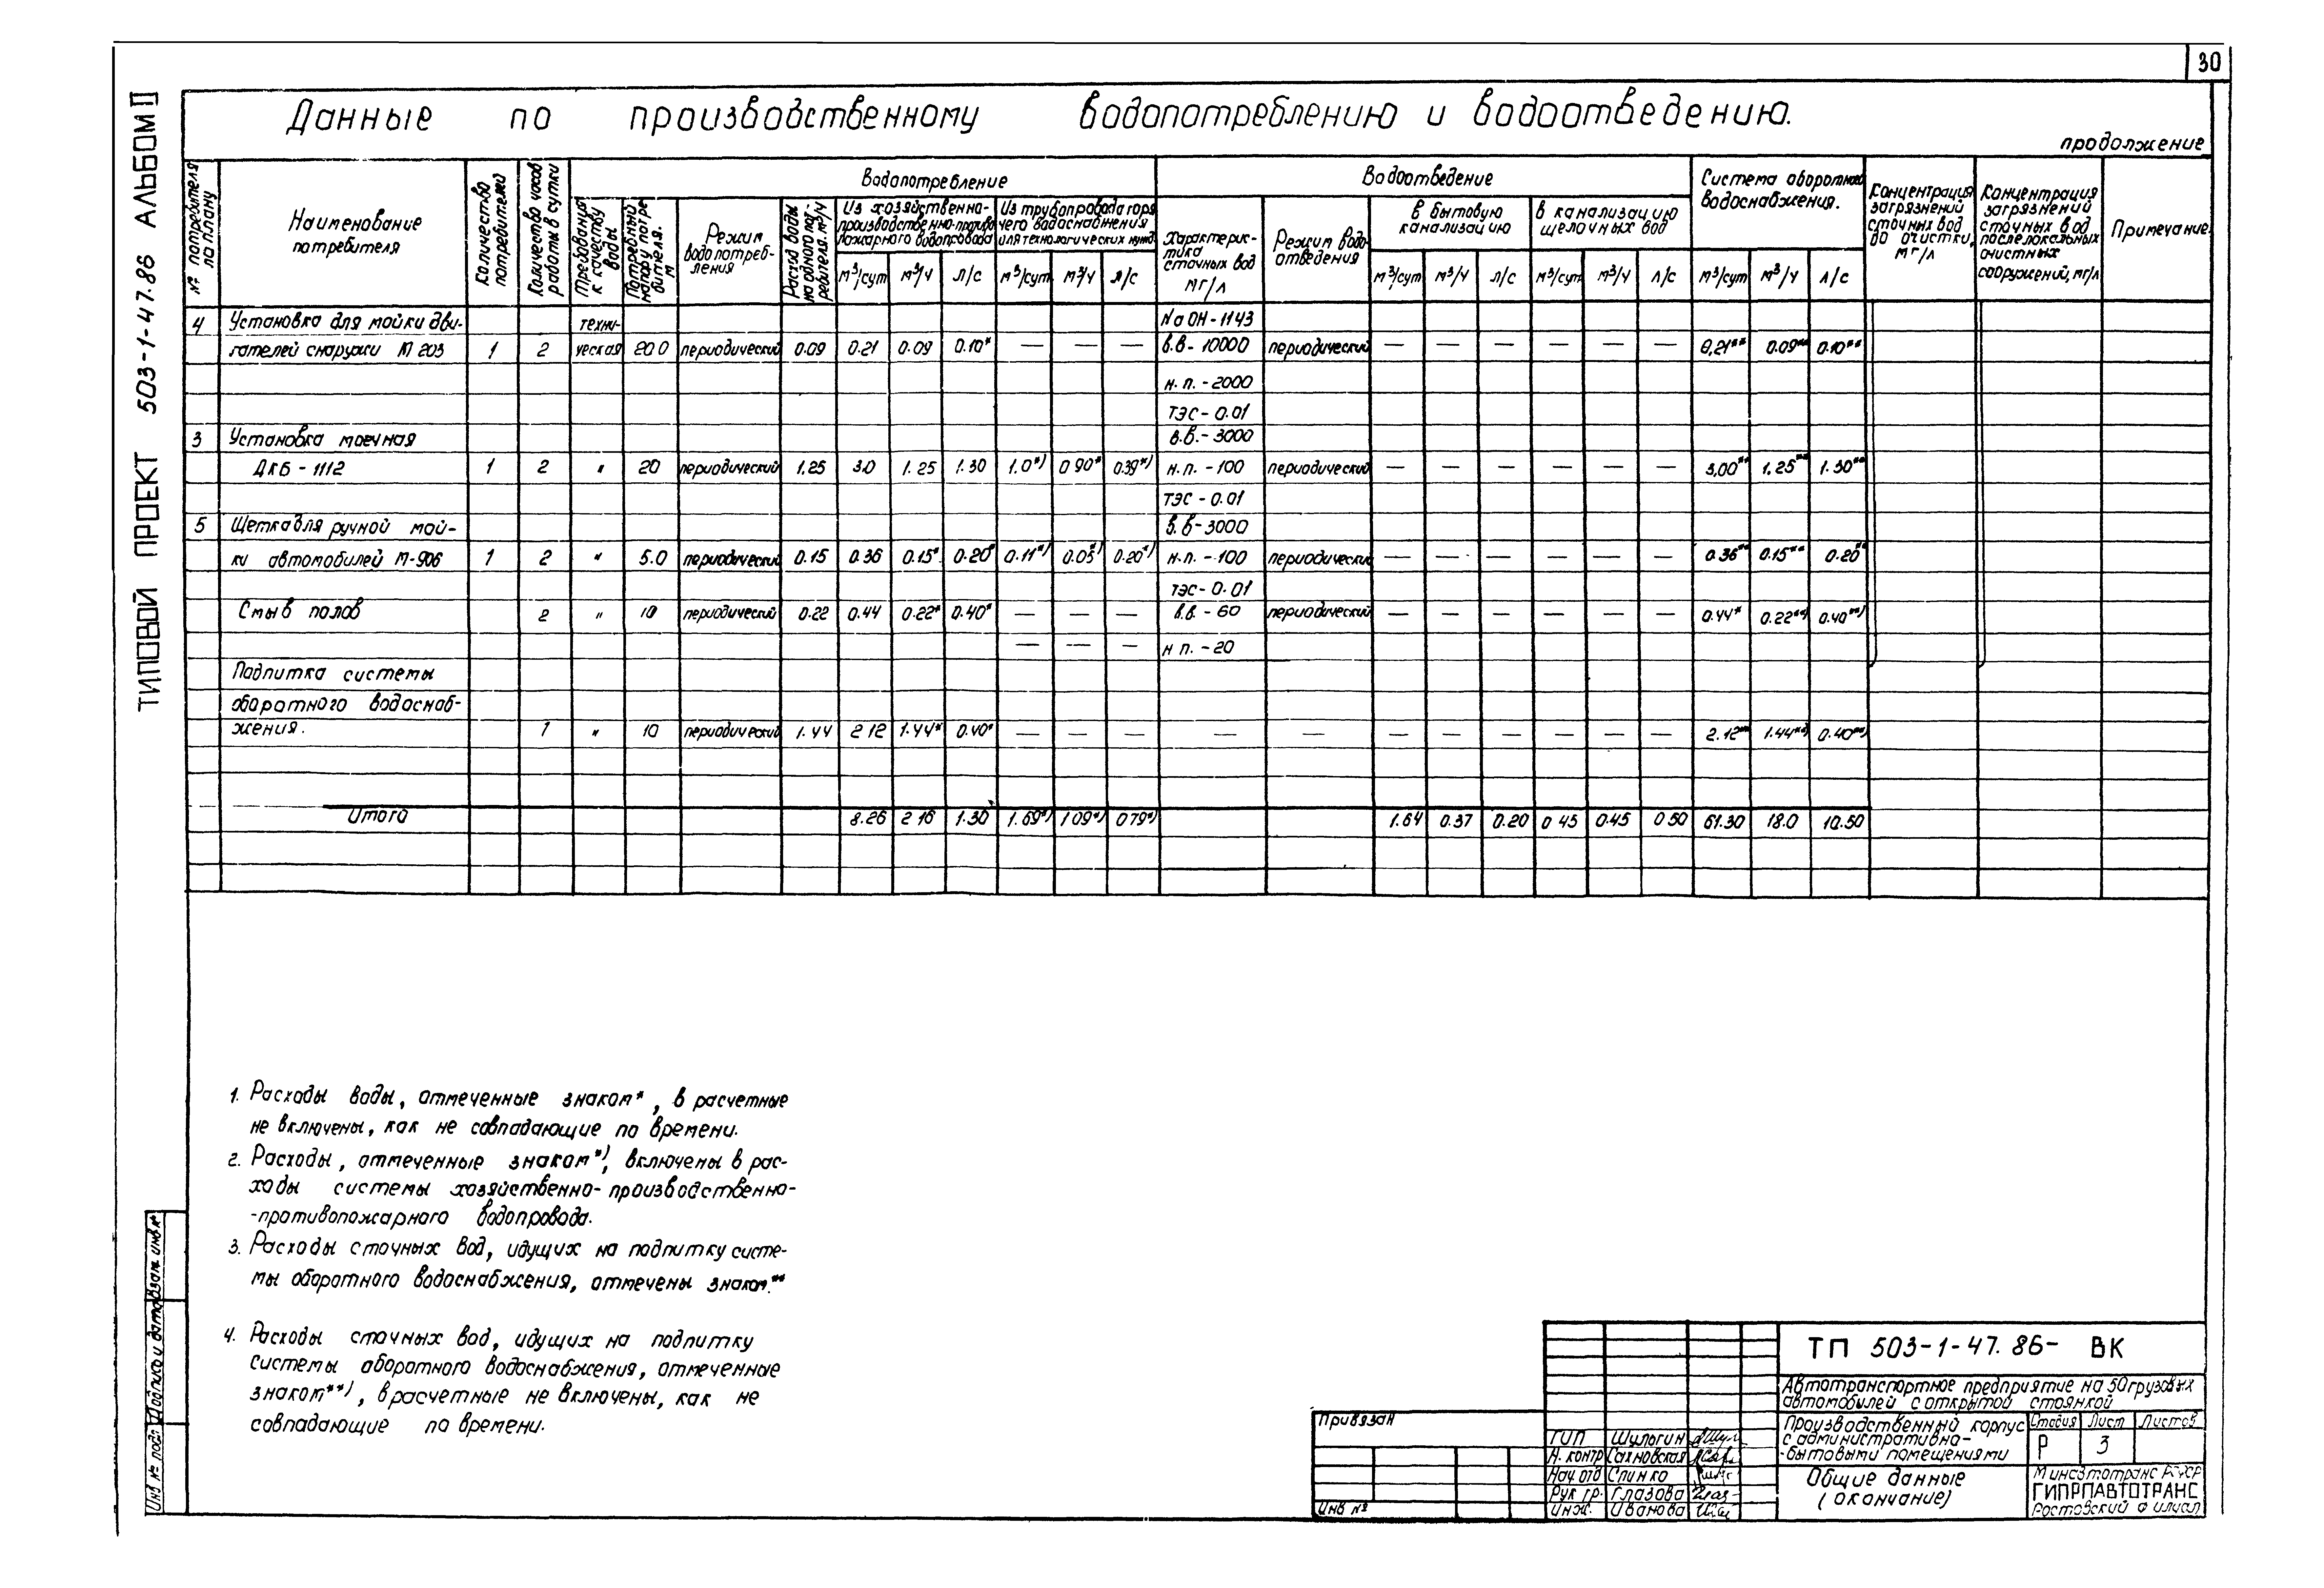 30
ТИПОВОЙ ПРОЕКТ 503-1-47.86 АЛЬБОМ II
Данные по производственному водопотреблению и водоотведению.
продолжение
№ потребителя по плану
Наименование потребителя
Количество потребителей
Количество часов работы в сутки
Водопотребление
Требования к качеству воды
Потребный напор у потребителя. м
Режим водопотребления
Расход воды на одного потребителя. м³/ч
Из хозяйственно-производственно-противопожарного водопровода
Из трубопровода горячего водоснабжения для технологических нужд.
м³/сут м³/ч л/с м³/сут м³/ч л/с
Водоотведение
Характеристика сточных вод мг/л
Режим водоотведения
в бытовую канализацию
в канализацию щелочных вод
м³/сут м³/ч л/с м³/сут м³/ч л/с
Система оборотного водоснабжения.
м³/сут м³/ч л/с
Концентрация загрязнений сточных вод до очистки, мг/л
Концентрация загрязнений сточных вод после локальных очистных сооружений, мг/л
Примечание
4 Установка для мойки дви- техни- NaOH-1143
гателей снаружи М 203 1 2 ческая 20 0 периодический 0.09 0.21 0.09 0.10* — — — в.в- 10000 периодический — — — — — — 0,21** 0.09** 0.10**
н.п. -2000
ТЭС-0.01
3 Установка моечная в.в.- 3000
ДКБ - 1112 1 2 " 20 периодический 1.25 3.0 1.25 1.30 1.0*) 0 90* 0.39*) н.п. -100 периодический — — — — — — 3,00** 1.25** 1.30**
ТЭС - 0.01
5 Щетка для ручной мой- в.в-3000
ки автомобилей М-906 1 2 " 5.0 периодический 0.15 0.36 0.15* 0.20* 0.11*) 0.05*) 0.20*) н.п. -100 периодический — — — — — — 0.36** 0.15** 0.20**
ТЭС-0.01
Смыв полов 2 " 10 периодический 0.22 0.44 0.22* 0.40* — — — в.в. - 60 периодический — — — — — — 0.44* 0.22**) 0.40**)
— — — н п. -20
Подпитка системы
оборотного водоснаб-
жения. 1 " 10 периодический 1.44 2 12 1.44* 0.40* — — — — — — — — — — — 2.12** 1.44**) 0.40**)
Итого 8.26 2 16 1.30 1.69*) 1 09*) 0 79*) 1.64 0.37 0.20 0 45 0.45 0 50 61.30 18.0 10.50
1. Расходы воды, отмеченные знаком*, в расчетные
не включены, как не совпадающие по времени.
2. Расходы, отмеченные знаком*), включены в рас-
ходы системы хозяйственно-производственно-
-противопожарного водопровода.
3. Расходы сточных вод, идущих на подпитку систе-
мы оборотного водоснабжения, отмечены знаком**.
4. Расходы сточных вод, идущих на подпитку
системы оборотного водоснабжения, отмеченные
знаком**), в расчетные не включены, как не
совпадающие по времени.
Инв № подл Подпись и дата Взам. инв №
Привязан
Инв №
ГИП Шульгин
Н. контр Сахновская
Нач. отд Спинко
Рук гр. Глазова
Инж. Иванова
ТП 503-1-47.86- ВК
Автотранспортное предприятие на 50 грузовых
автомобилей с открытой стоянкой
Производственный корпус
с административно-
-бытовыми помещениями
Стадия Лист Листов
Р 3
Общие данные
(окончание)
Минавтотранс РСФСР
ГИПРОАВТОТРАНС
Ростовский филиал